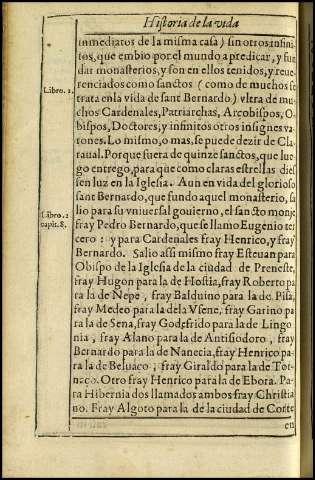 Historia de la vida
inmediatos de la misma casa) sin otros infini
tos, que embio por el mundo a predicar, y fun
dar monasterios, y son en ellos tenidos, y reue
renciados como sanctos (como de muchos se
Libro. 2.
trata en la vida de sant Bernardo) vltra de mu
chos Cardenales, Patriarchas, Arçobispos, O-
bispos, Doctores, y infinitos otros insignes va
rones. Lo mismo, o mas, se puede dezir de Cla
raual. Porque fuera de quinze sanctos, que lue
go entrego, para que como claras estrellas dies
sen luz en la Iglesia. Aun en vida del glorioso
sant Bernardo, que fundo aquel monasterio, sa
Libro. 2
capit. 8.
lio para su vniuersal gouierno, el sancto monje
fray Pedro Bernardo, que se llamo Eugenio ter
cero: y para Cardenales fray Henrico, y fray
Bernardo. Salio assi mismo fray Esteuan para
Obispo de la Iglesia de la ciudad de Preneste,
fray Hugon para la de Hostia, fray Roberto pa
ra la de Nepe, fray Balduino para la de Pisa,
fray Medeo para la dela Vsene, fray Garino pa
ra la de Sena, fray Godefrido para la de Lingo
nia, fray Alano para la de Antisiodoro, fray
Bernardo para la de Nanecia, fray Henrico pa-
ra la de Beluaco, fray Giraldo para la de Tor-
naco. Otro fray Henrico para la de Ebora. Pa-
ra Hibernia dos llamados ambos fray Christia
no. Fray Algoto para la de la ciudad de Corte
en